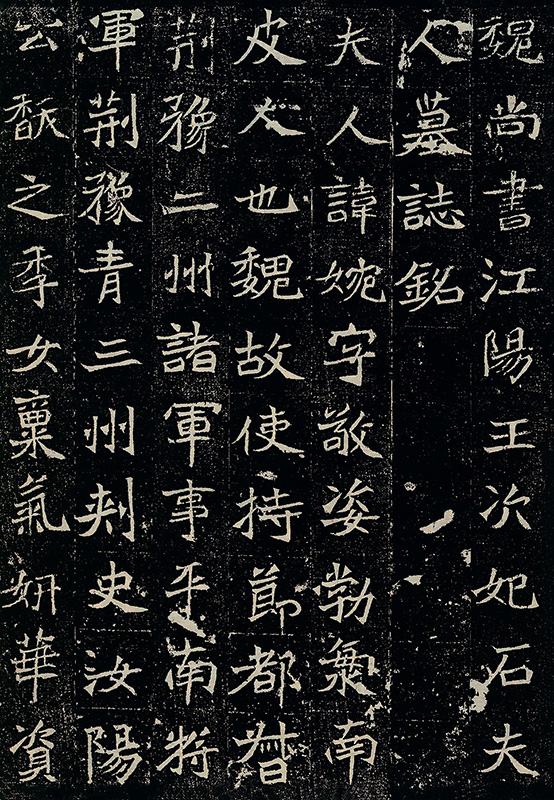 魏尚書江陽王次妃石夫
人墓誌銘
夫人諱婉字敬姿勃海南
皮人也魏故使持節都督
荊豫二州諸軍事平南將
軍荊豫青三州刺史汝陽
公馛之季女稟氣妍華資